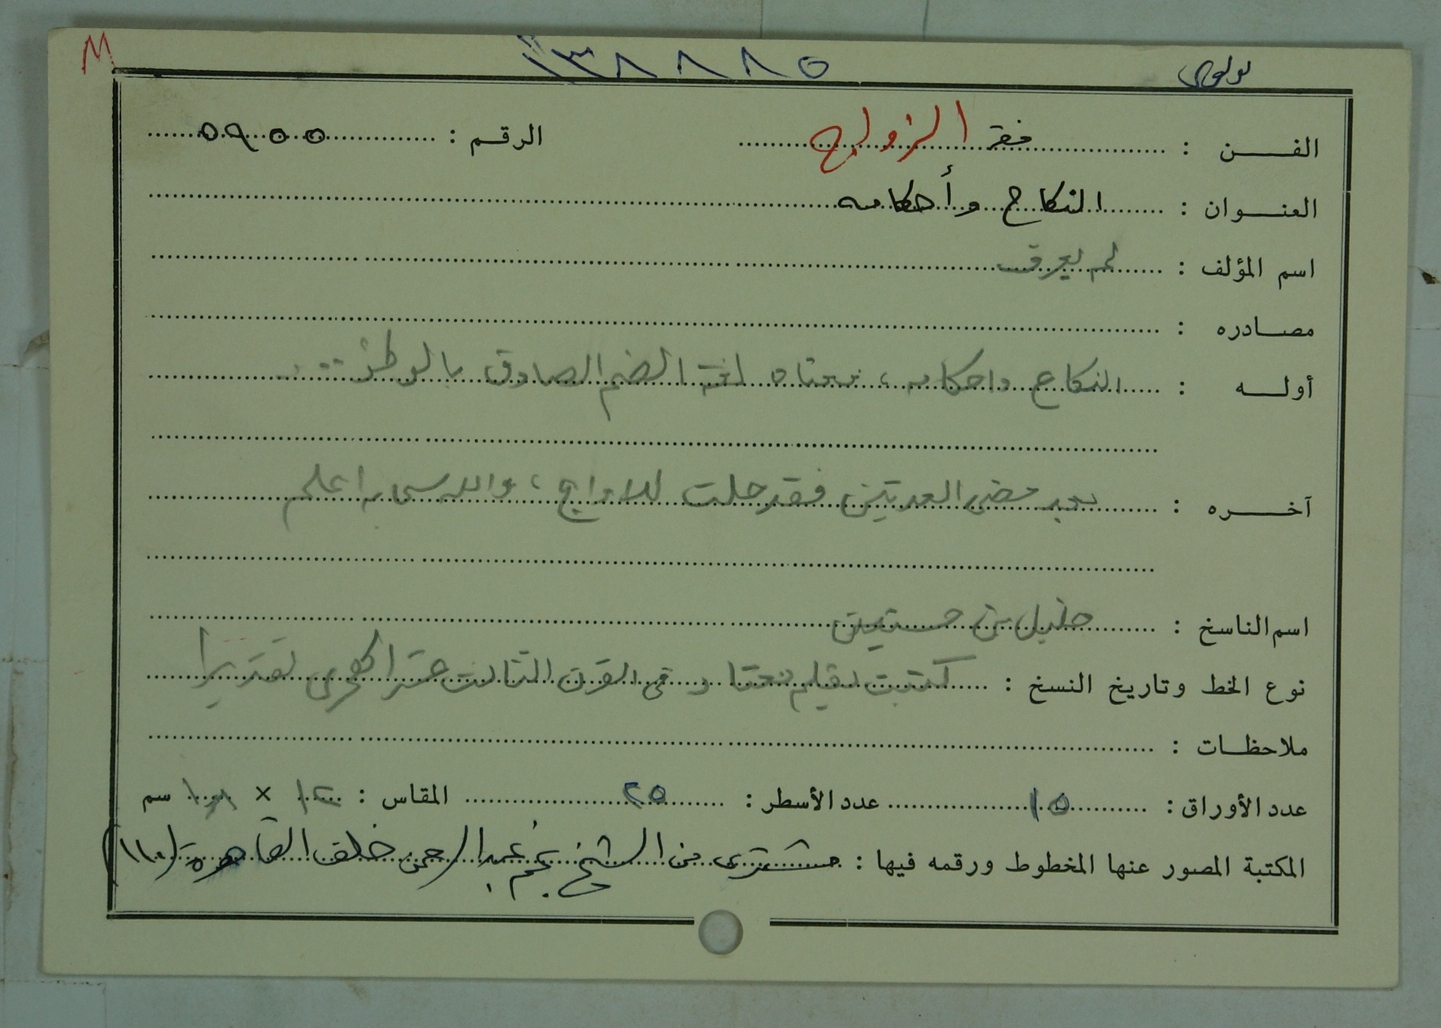 M
١٣٨٨٨٥
الفن : فقه الزواج الرقم : ٥٩٥٥
العنوان : النكاح وأحكامه
اسم المؤلف : لم يعرف
مصادره :
أوله : النكاح واحكامه ، معناه لغة الضم الصادق بالوطئ ..
آخره : بعد مضى العدتين فقد حلت للازواج ، والله سبحانه اعلم
اسم الناسخ : خليل بن حسنين
نوع الخط وتاريخ النسخ : كتبت بقلم معتاد فى القرن الثالث عشر الهجرى تقديرا
ملاحظات :
عدد الأوراق : ١٥ عدد الأسطر : ٢٥ المقاس : × سم
المكتبة المصور عنها المخطوط ورقمه فيها : مشترى من الشيخ عبد الرحمن خلف القاهرة (١١٠)